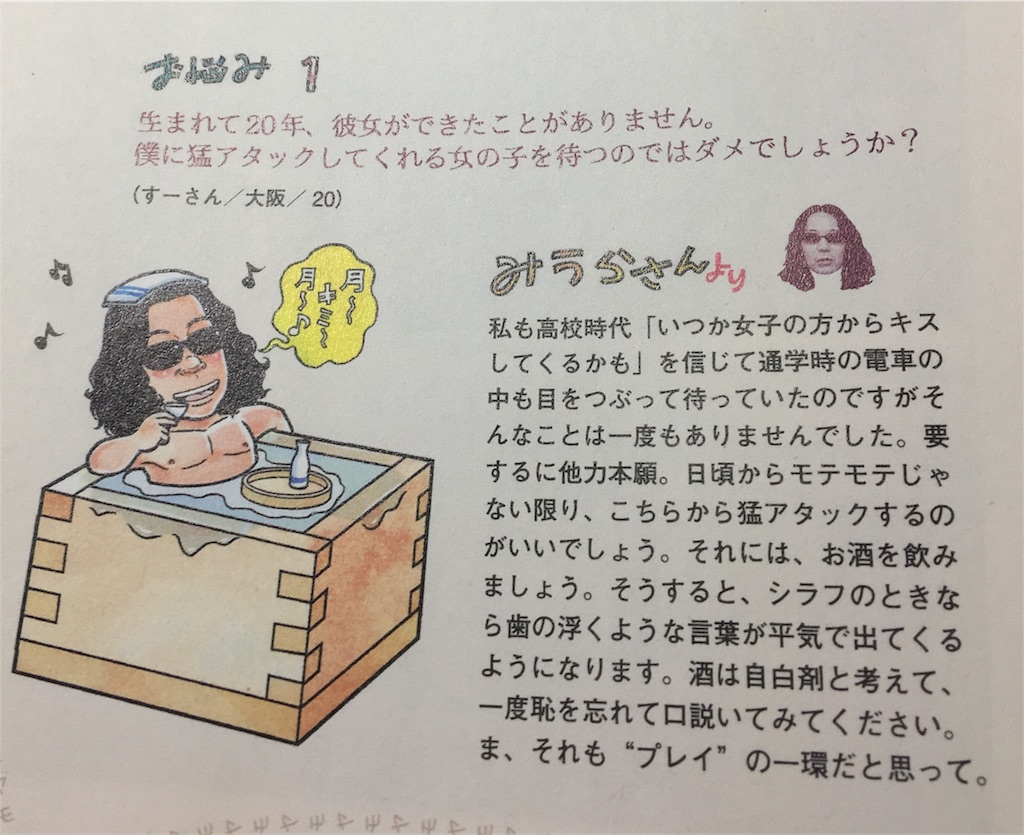 お悩み 1
生まれて20年、彼女ができたことがありません。
僕に猛アタックしてくれる女の子を待つのではダメでしょうか？
(すーさん／大阪／20)
みうらさんより
月〜
キミ〜
月〜♪
私も高校時代「いつか女子の方からキス
してくるかも」を信じて通学時の電車の
中も目をつぶって待っていたのですがそ
んなことは一度もありませんでした。要
するに他力本願。日頃からモテモテじゃ
ない限り、こちらから猛アタックするの
がいいでしょう。それには、お酒を飲み
ましょう。そうすると、シラフのときな
ら歯の浮くような言葉が平気で出てくる
ようになります。酒は自白剤と考えて、
一度恥を忘れて口説いてみてください。
ま、それも“プレイ”の一環だと思って。